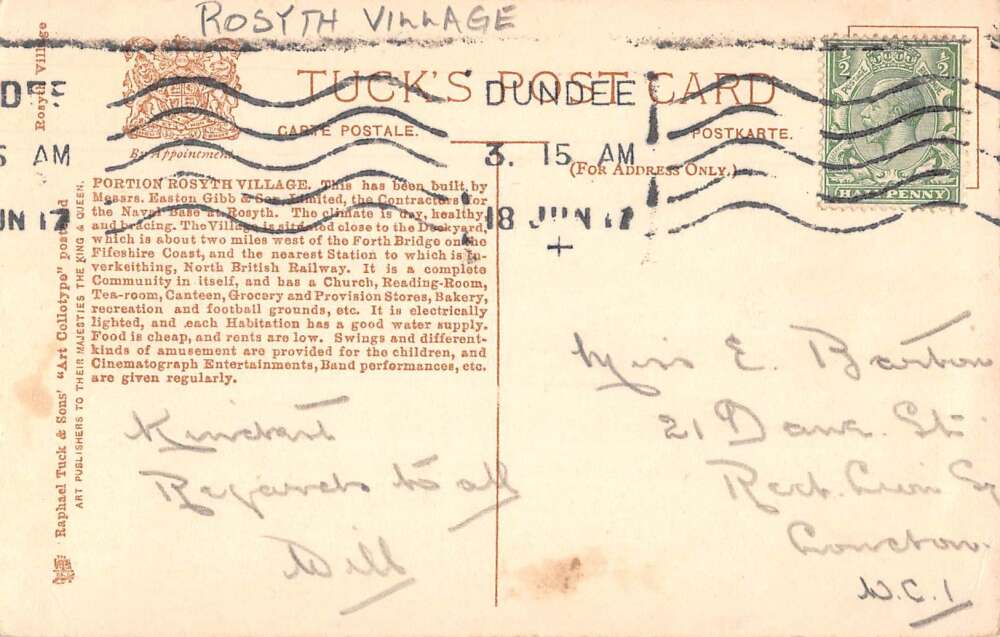 ROSYTH VILLAGE
TUCK'S POST CARD
CARTE POSTALE.
POSTKARTE.
By Appointment.
(FOR ADDRESS ONLY.)
DUNDEE
3. 15 AM
18 JUN 17
5 AM
UN 17
½ ½
HALFPENNY
Rosyth Village
Raphael Tuck & Sons' "Art Collotype" postcard
ART PUBLISHERS TO THEIR MAJESTIES THE KING & QUEEN.
PORTION ROSYTH VILLAGE. This has been built by
Messrs. Easton Gibb & Son, Limited, the Contractors for
the Naval Base at Rosyth. The climate is dry, healthy
and bracing. The Village is situated close to the Dockyard,
which is about two miles west of the Forth Bridge on the
Fifeshire Coast, and the nearest Station to which is In-
verkeithing, North British Railway. It is a complete
Community in itself, and has a Church, Reading-Room,
Tea-room, Canteen, Grocery and Provision Stores, Bakery,
recreation and football grounds, etc. It is electrically
lighted, and each Habitation has a good water supply.
Food is cheap, and rents are low. Swings and different-
kinds of amusement are provided for the children, and
Cinematograph Entertainments, Band performances, etc.
are given regularly.
Kindest
Regards to all
Will
Miss E. Barton
21 Dane. St.
Red. Lion Sq
London.
W.C.1